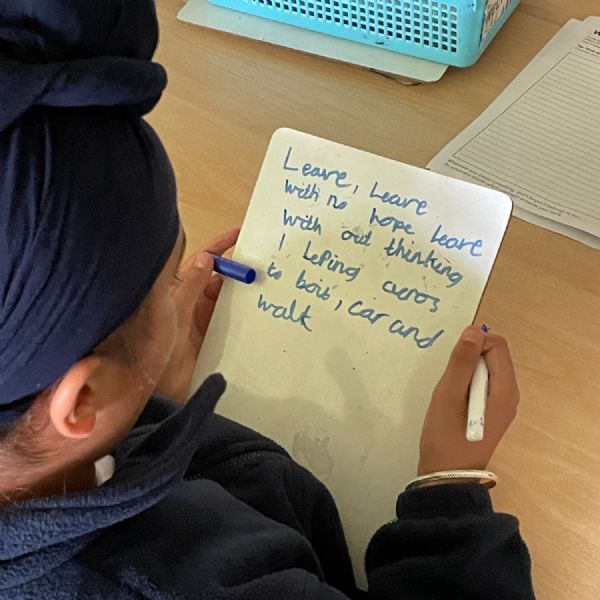 Leave, Leave
with no hope leare
with out thinking
I leping aeros
to bois, car and
walk